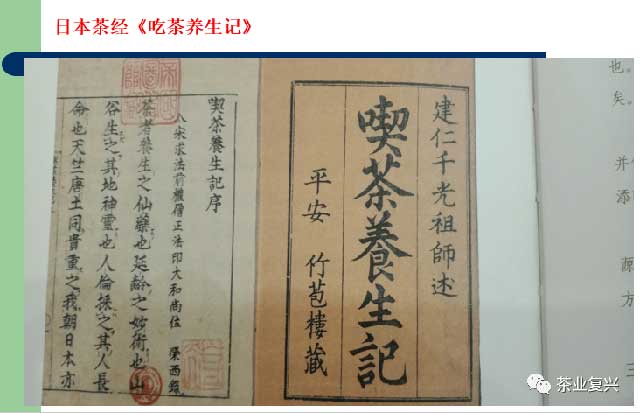 日本茶经《吃茶养生记》
建仁千光祖師述
喫茶養生記
平安 竹苞樓藏
喫茶養生記序
入宋求法前權僧正法印大和尚位 榮西録
茶者養生之仙藥也延齡之妙術也山
谷生之其地神靈也人倫採之其人長
命也天竺唐土同貴重之我朝日本亦
也。
矣。
并
添
原
方
三
茶业复兴